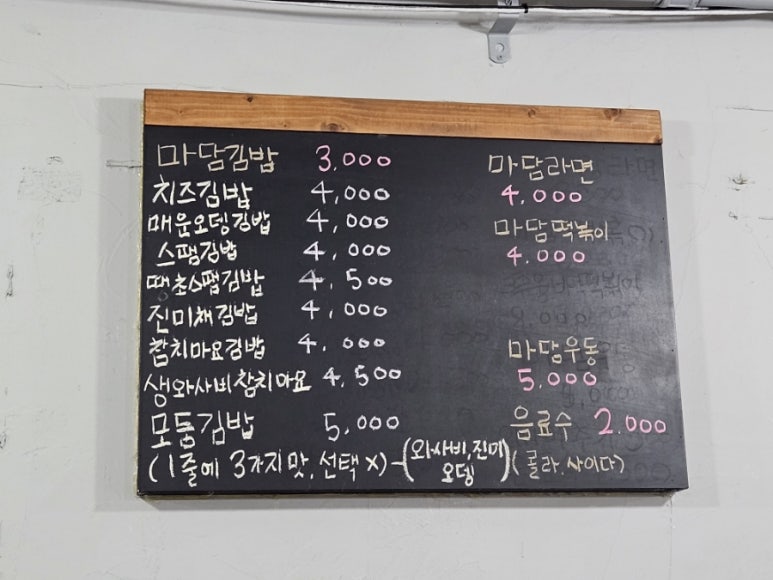 마담김밥 3.000
치즈김밥 4,000
매운오뎅김밥 4,000
스팸김밥 4,000
땡초스팸김밥 4,500
진미채김밥 4,000
참치마요김밥 4,000
생와사비참치마요 4,500
모둠김밥 5,000
(1줄에 3가지 맛, 선택 X)-(와사비,진미 오뎅)
마담라면
4.000
마담떡볶이
4.000
마담우동
5.000
음료수 2.000
(콜라,사이다)